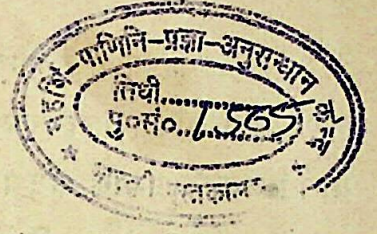 महर्षि-पाणिनि-प्रज्ञा-अनुसन्धान केन्द्र
तिथी............
पु०सं०..1565